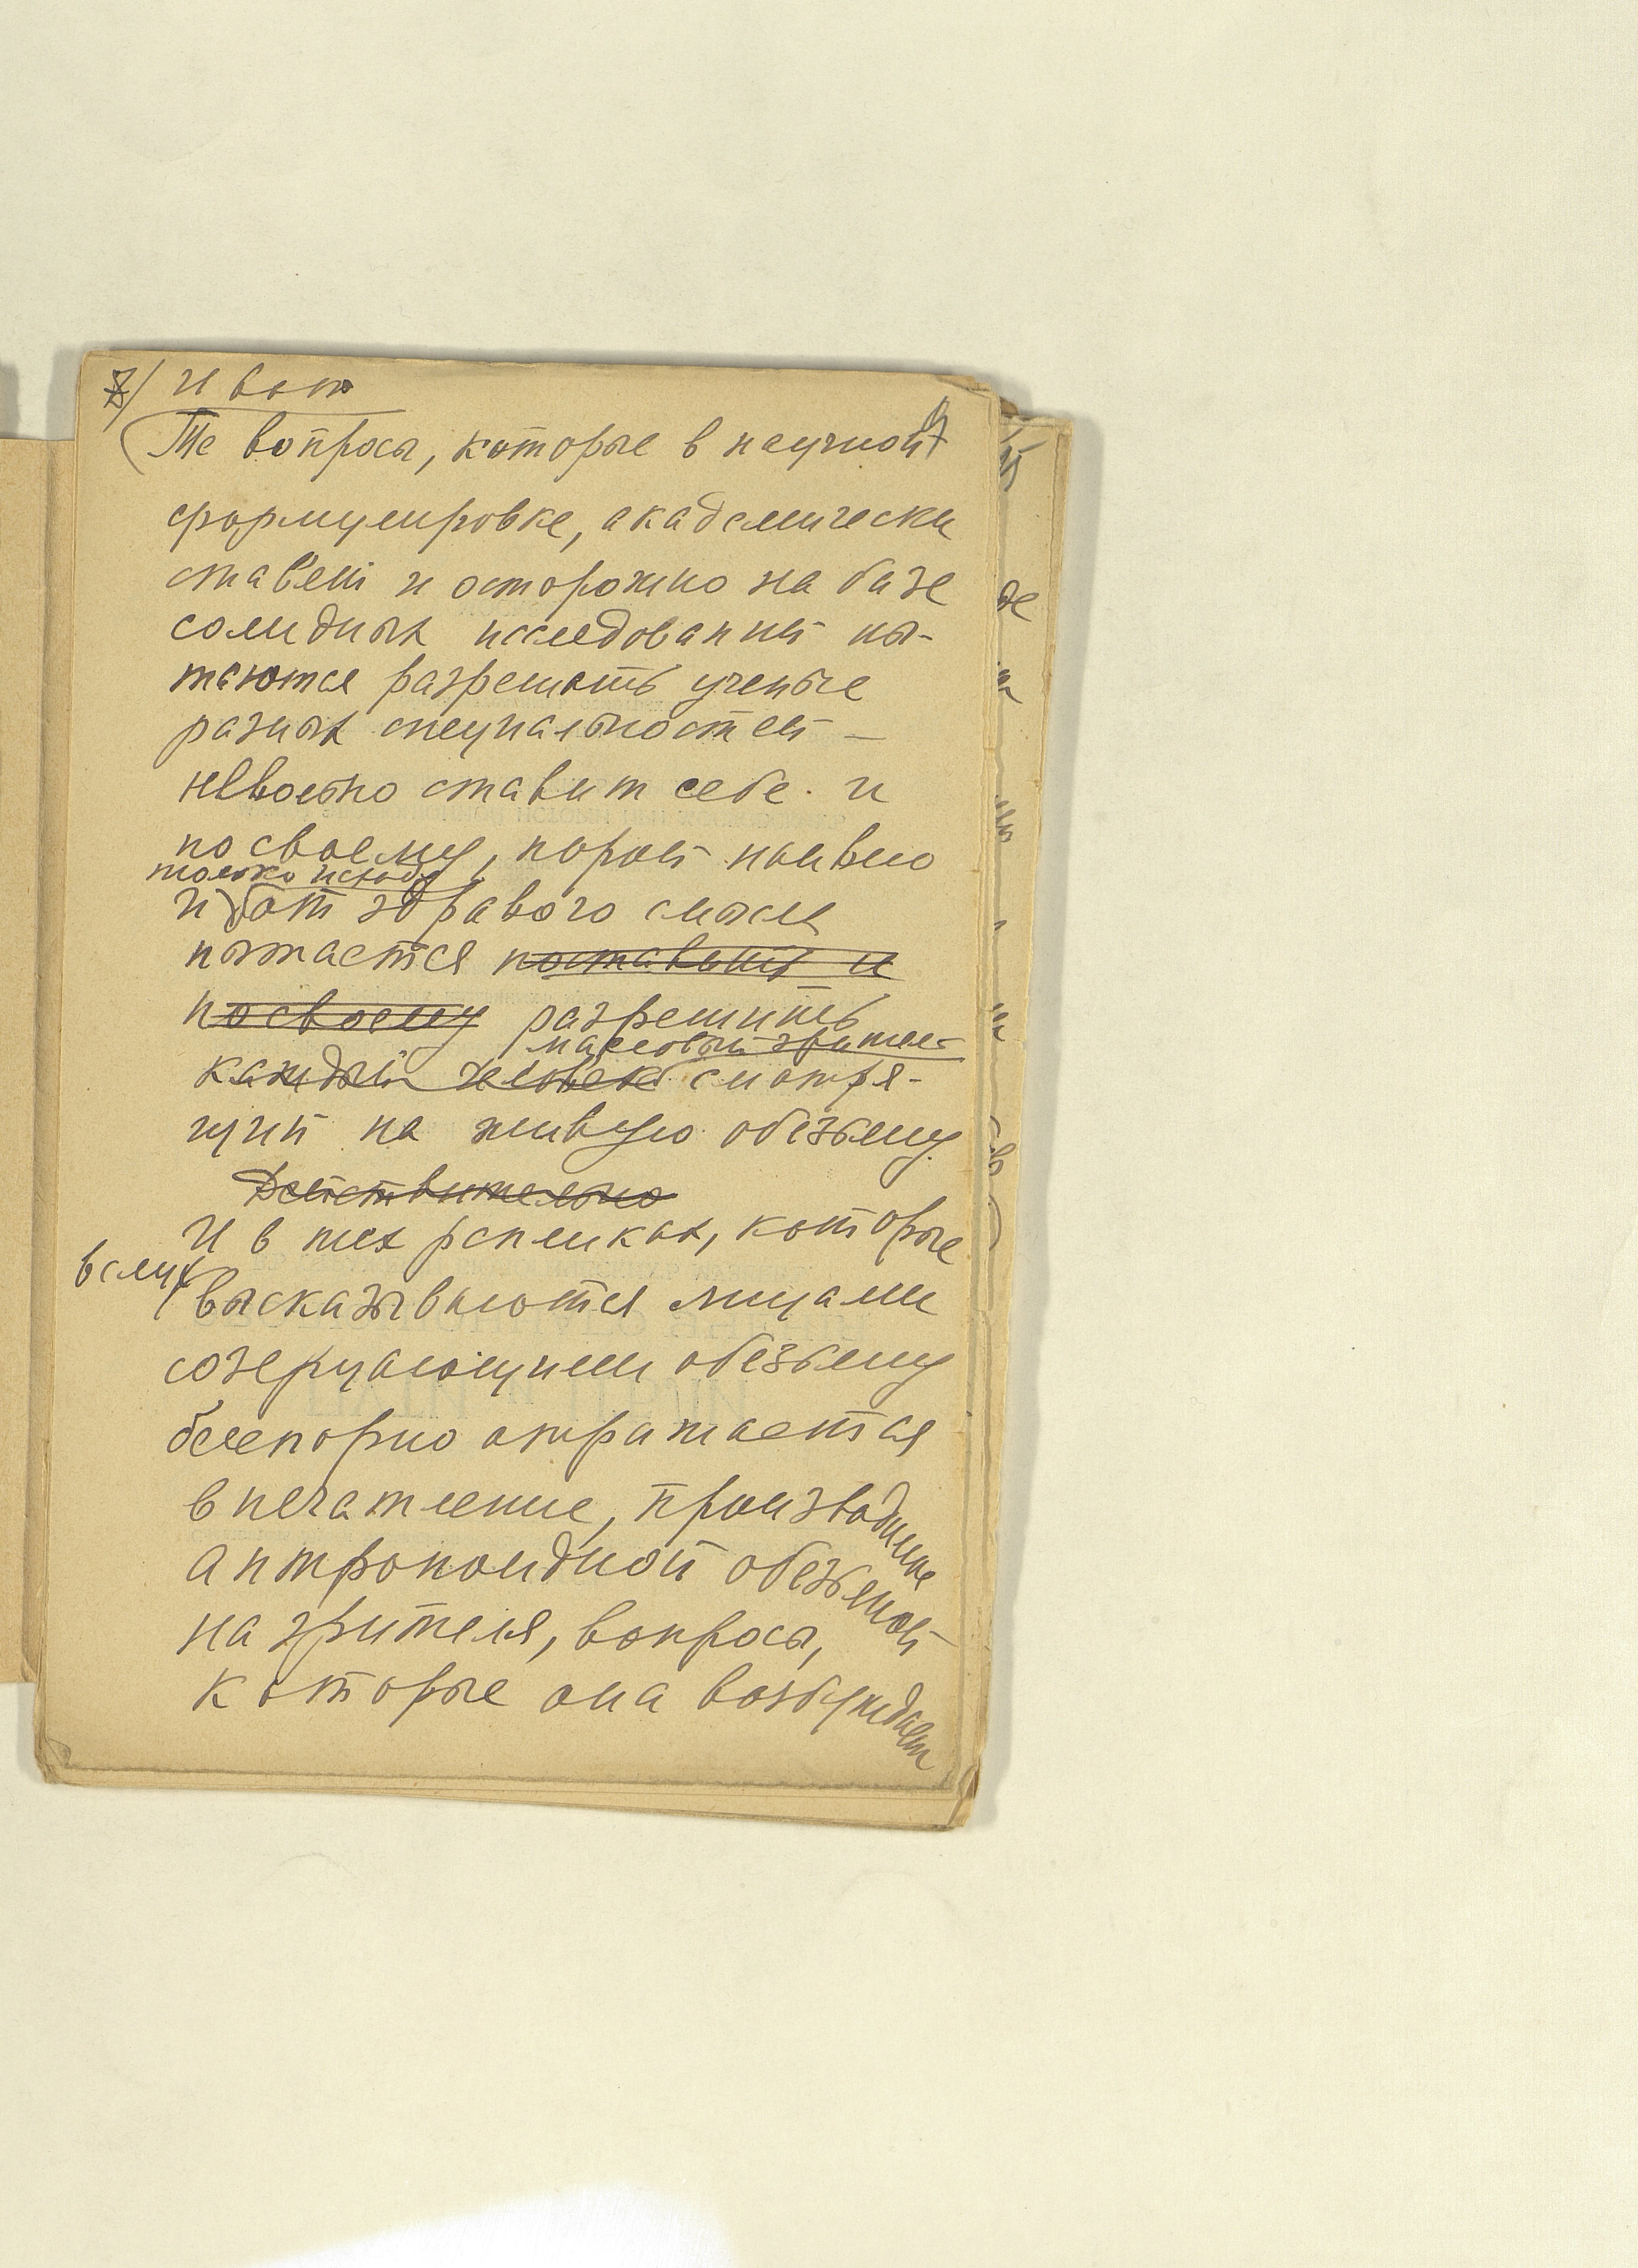 7/ И вот
Те вопросы, которые в научной
формулировке, академически
ставят и осторожно на базе
солидных исследований пы-
таются разрешать ученые
разных специальностей —
невольно ставит себе и
по своему, порой наивно
только исходя
и от здравого смысла
пытается поставить и
по своему разрешить
массовый зритель
каждый человек смотря-
щий на живую обезьяну
Действительно
И в тех репликах, которые
вслух
высказываются лицами
созерцающими обезьяну
бесспорно отражается
впечатление, производимое
антропоидной обезьяной
на зрителя, вопросы,
которые она возбуждает